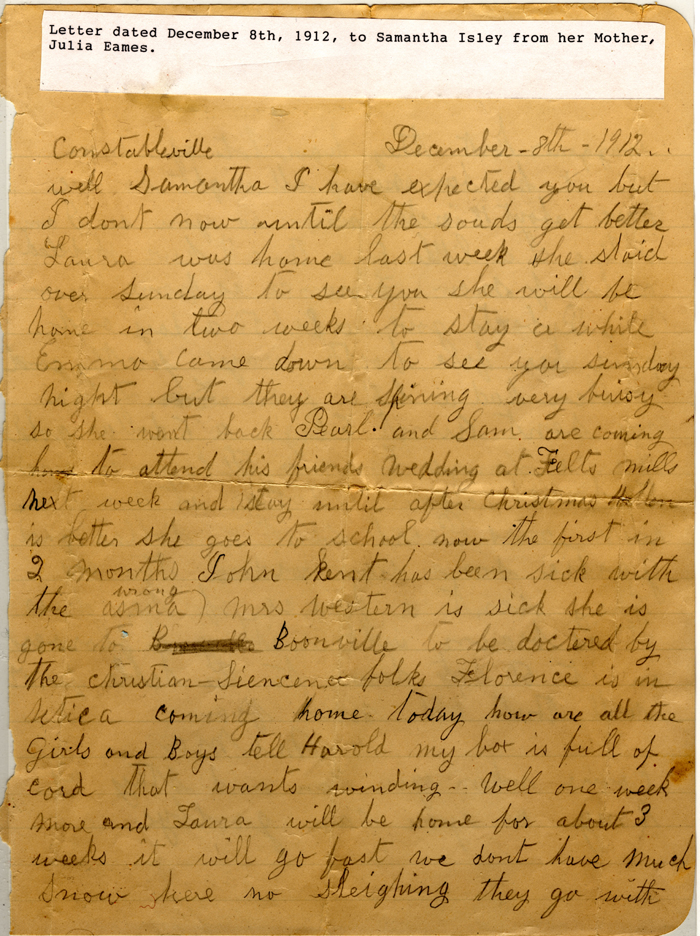 Letter dated December 8th, 1912, to Samantha Isley from her Mother,
Julia Eames.
Constableville December-8th-1912..
well Samantha I have expected you but
I dont now until the roads get better
Laura was home last week she staid
over sunday to see you she will be
home in two weeks to stay a while
Emma came down to see you sunday
night but they are spining very buisy
so she went back Pearl. and Sam. are coming
to attend his friends wedding at Felts mills
next week and stay until after Christmas Hellen
is better she goes to school. now the first in
2 months John Kent has been sick with
wrong
the asma) mrs western is sick she is
gone to Boonville to be doctered by
the christian-Siencence folks Florence is in
Utica coming home. today how are all the
Girls and Boys tell Harold my box is full of
cord that wants winding-- Well one week
more and Laura will be home for about 3
weeks it will go fast we dont have much
snow here no sleighing they go with